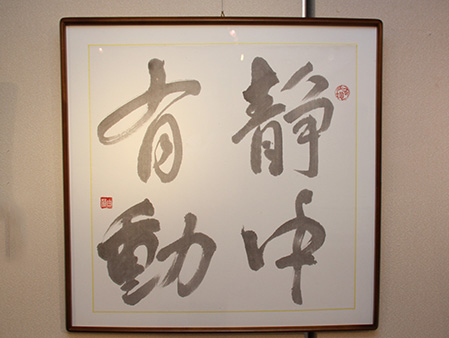 静中
有動